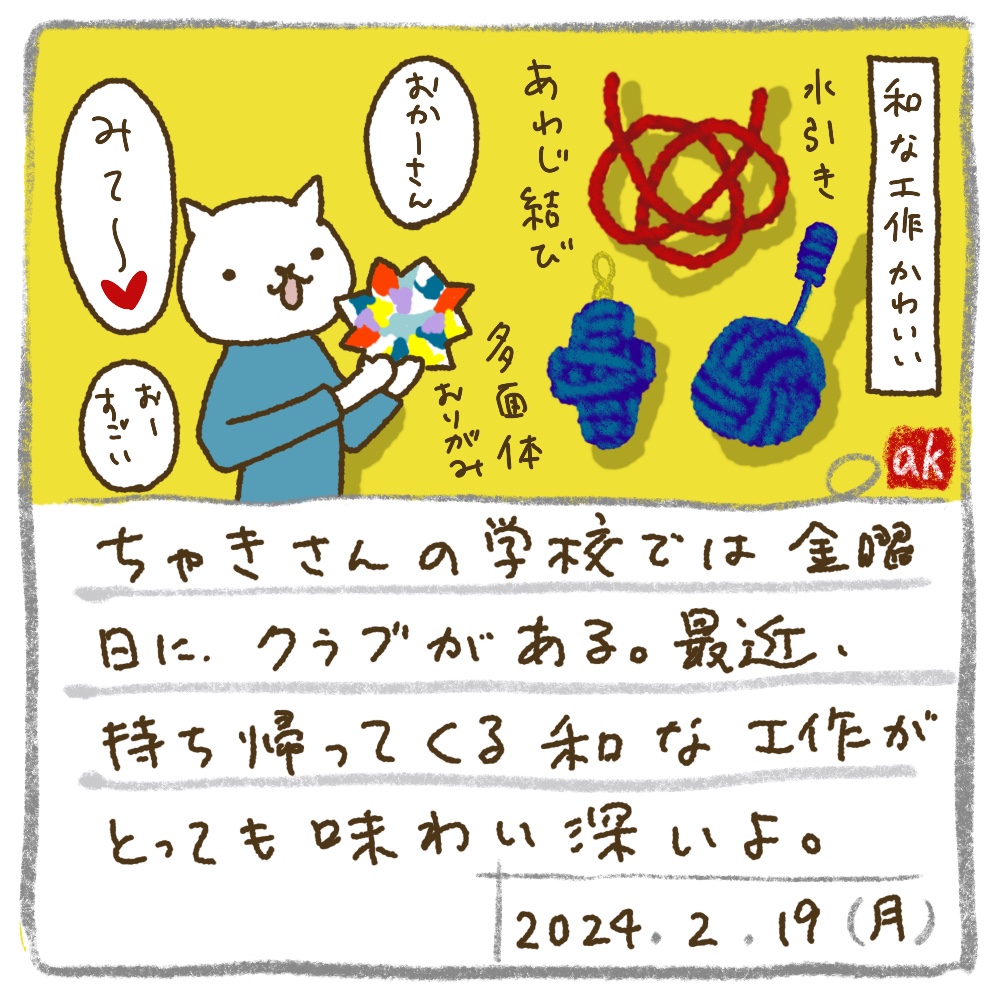 和な工作かわいい
水引き
あわじ結び
おかーさん
みて〜
おー
すごい
多面体
おりがみ
ak
ちゃきさんの学校では金曜
日に、クラブがある。最近、
持ち帰ってくる和な工作が
とっても味わい深いよ。
2024.2.19(月)